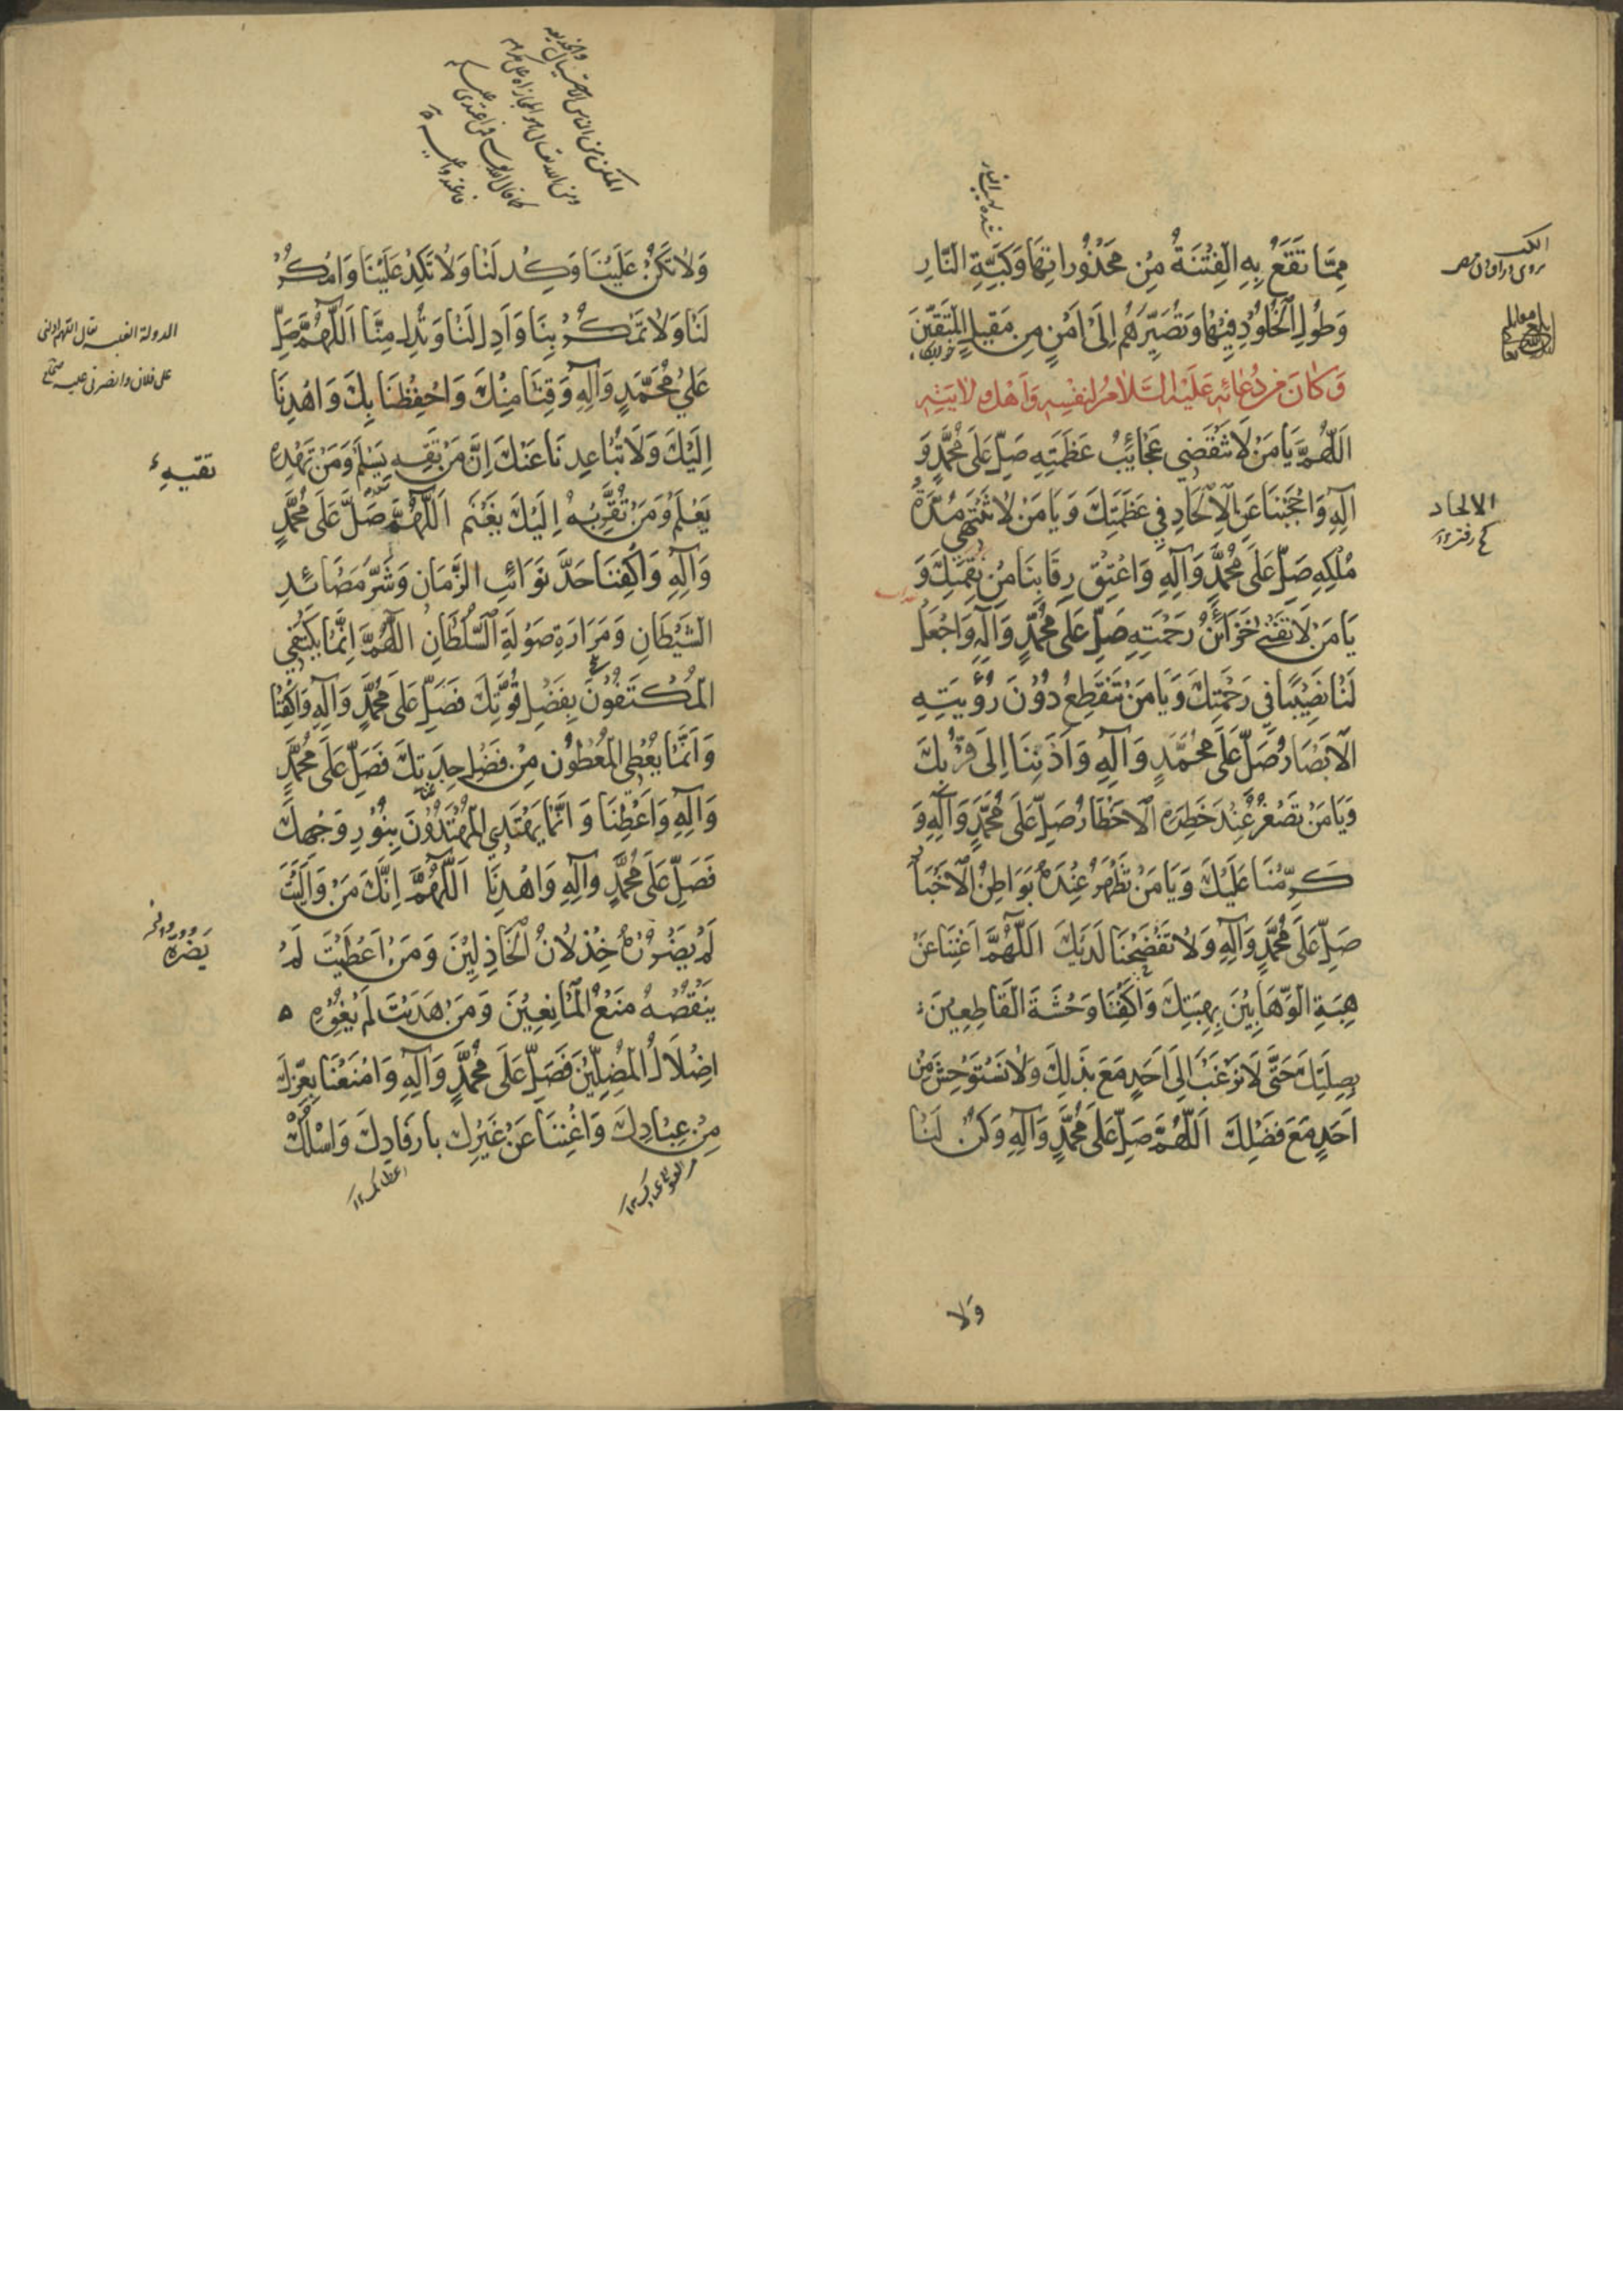 مِمَّا تَقَعُ بِهِ الْفِتْنَةُ مِنْ مَحْذُوراتِهَا وَكَبَّةِ النَّارِ
وَطُولِ الْخُلُودِ فِيهَا وَتُصَيِّرَهُمْ اِلَىٰ اَمْنٍ مِنْ مَقِيلِ الْمُتَّقِينَ
وَكَانَ مِنْ دُعَائِهِ عَلَيْهِ السَّلَامُ لِنَفْسِهِ وَاَهْلِ وِلَايَتِهِ
اَللّٰهُمَّ يَا مَنْ لَا تَنْقَضِي عَجَائِبُ عَظَمَتِهِ صَلِّ عَلَى مُحَمَّدٍ وَ
آلِهِ وَاحْجُبْنَا عَنِ الْاِلْحَادِ فِي عَظَمَتِكَ وَيَا مَنْ لَا تَنْتَهِي مُدَّةُ
مُلْكِهِ صَلِّ عَلَى مُحَمَّدٍ وَآلِهِ وَاعْتِقْ رِقَابَنَا مِنْ نِقْمَتِكَ وَ
يَا مَنْ لَا تَفْنَى خَزَائِنُ رَحْمَتِهِ صَلِّ عَلَى مُحَمَّدٍ وَآلِهِ وَاجْعَلْ
لَنَا نَصِيْبًا فِي رَحْمَتِكَ وَيَا مَنْ تَنْقَطِعُ دُوْنَ رُؤْيَتِهِ
الْاَبْصَارُ صَلِّ عَلَى مُحَمَّدٍ وَآلِهِ وَاَدْنِنَا اِلَى قُرْبِكَ
وَيَا مَنْ تَصْغُرُ عِنْدَ خَطَرِهِ الْاَخْطَارُ صَلِّ عَلَى مُحَمَّدٍ وَآلِهِ وَ
كَرِّمْنَا عَلَيْكَ وَيَا مَنْ تَظْهَرُ عِنْدَهُ بَوَاطِنُ الْاَخْبَارِ
صَلِّ عَلَى مُحَمَّدٍ وَآلِهِ وَلَا تَفْضَحْنَا لَدَيْكَ اَللّٰهُمَّ اَغْنِنَا عَنْ
هِبَةِ الْوَهَّابِيْنَ بِهِبَتِكَ وَاكْفِنَا وَحْشَةَ الْقَاطِعِيْنَ
بِصِلَتِكَ حَتَّى لَا نَرْغَبَ اِلَى اَحَدٍ مَعَ بَذْلِكَ وَلَا نَسْتَوْحِشَ مِنْ
اَحَدٍ مَعَ فَضْلِكَ اَللّٰهُمَّ صَلِّ عَلَى مُحَمَّدٍ وَآلِهِ وَكِدْ لَنَا
وَلا
الالحاد
وَلَا تَكُنْ عَلَيْنَا وَكِدْ لَنَا وَلَا تَكِدْ عَلَيْنَا وَامْكُرْ
لَنَا وَلَا تَمْكُرْ بِنَا وَاَدِلْ لَنَا وَلَا تُدِلْ مِنَّا اَللّٰهُمَّ صَلِّ
عَلَىٰ مُحَمَّدٍ وَآلِهِ وَقِنَا مِنْكَ وَاحْفَظْنَا بِكَ وَاهْدِنَا
اِلَيْكَ وَلَا تُبَاعِدْنَا عَنْكَ اِنَّ مَنْ تَقِهِ يَسْلَمْ وَمَنْ تَهْدِهِ
يَعْلَمْ وَمَنْ تُقَرِّبْهُ اِلَيْكَ يَغْنَمْ اَللّٰهُمَّ صَلِّ عَلَى مُحَمَّدٍ
وَآلِهِ وَاكْفِنَا حَدَّ نَوَائِبِ الزَّمَانِ وَشَرَّ مَصَائِدِ
الشَّيْطَانِ وَمَرَارَةِ صَوْلَةِ السُّلْطَانِ اَللّٰهُمَّ اِنَّمَا يَكْتَفِي
الْمُكْتَفُوْنَ بِفَضْلِ قُوَّتِكَ فَصَلِّ عَلَى مُحَمَّدٍ وَآلِهِ وَاكْفِنَا
وَاِنَّمَا يُعْطِي الْمُعْطُوْنَ مِنْ فَضْلِ جِدَتِكَ فَصَلِّ عَلَى مُحَمَّدٍ
وَآلِهِ وَاَعْطِنَا وَاِنَّمَا يَهْتَدِي الْمُهْتَدُوْنَ بِنُوْرِ وَجْهِكَ
فَصَلِّ عَلَى مُحَمَّدٍ وَآلِهِ وَاهْدِنَا اَللّٰهُمَّ اِنَّكَ مَنْ وَالَيْتَ
لَمْ يَضْرُرْهُ خِذْلَانُ الْخَاذِلِيْنَ وَمَنْ اَعْطَيْتَ لَمْ
يَنْقُصْهُ مَنْعُ الْمَانِعِيْنَ وَمَنْ هَدَيْتَ لَمْ يُغْوِهِ
اِضْلَالُ الْمُضِلِّيْنَ فَصَلِّ عَلَى مُحَمَّدٍ وَآلِهِ وَامْنَعْنَا بِعِزِّكَ
مِنْ عِبَادِكَ وَاَغْنِنَا عَنْ غَيْرِكَ بِاِرْفَادِكَ وَاسْلُكْ
تقيهِ
يَضُرّه